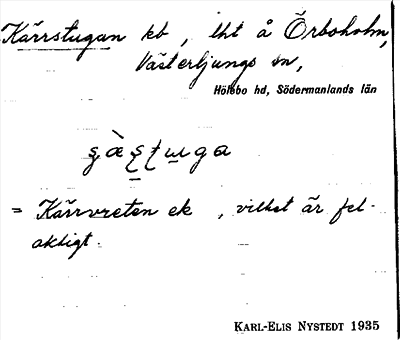 Kärrstugan kb, lht å Örboholm,
Västerljungs sn,
Hölebo hd, Södermanlands län
= Kärrvreten ek, vilket är fel-
aktigt.
KARL-ELIS NYSTEDT 1935